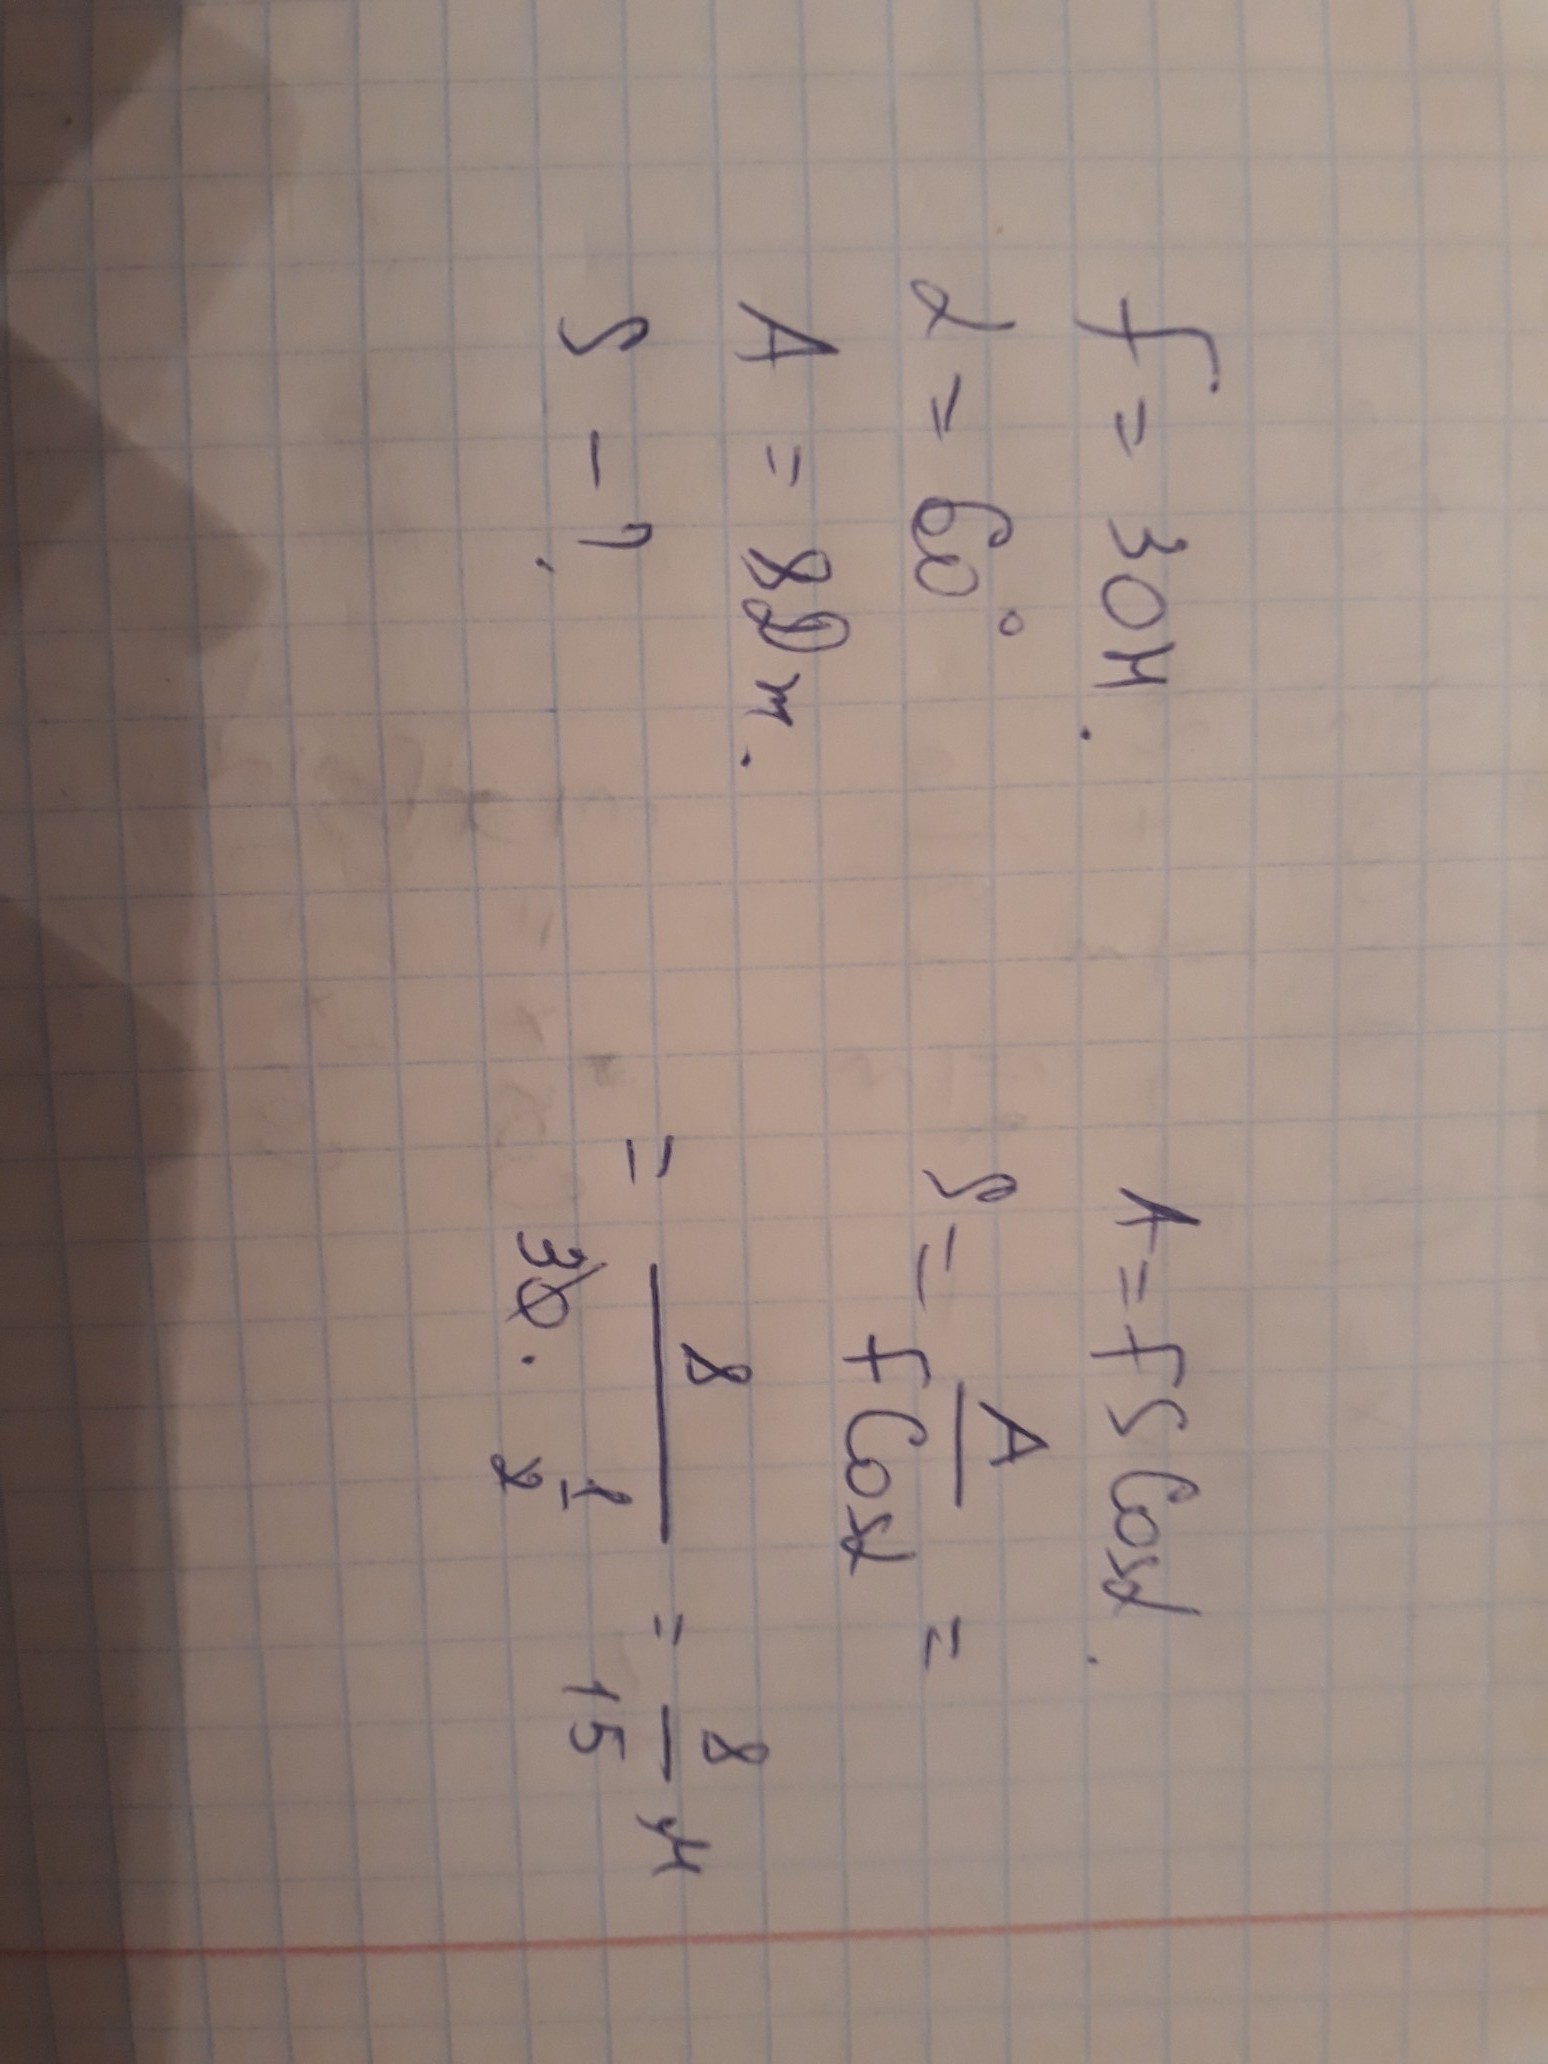 F = 30H.
α = 60°
A = 8Дж.
S - ?
A = FS Cosα.
S = A / F Cosα =
= 8 / 30 · 1/2 = 8/15 м